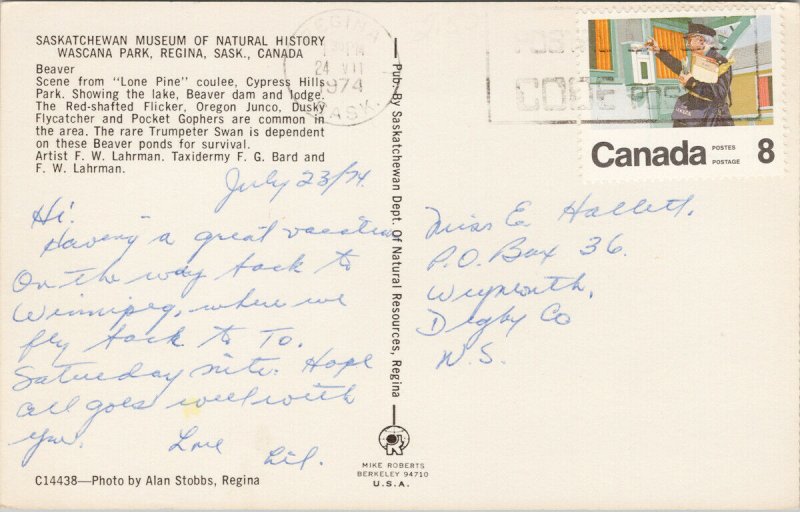 SASKATCHEWAN MUSEUM OF NATURAL HISTORY
WASCANA PARK, REGINA, SASK., CANADA
Beaver
Scene from "Lone Pine" coulee, Cypress Hills
Park. Showing the lake, Beaver dam and lodge.
The Red-shafted Flicker, Oregon Junco, Dusky
Flycatcher and Pocket Gophers are common in
the area. The rare Trumpeter Swan is dependent
on these Beaver ponds for survival.
Artist F. W. Lahrman. Taxidermy F. G. Bard and
F. W. Lahrman.
July 23/74.
Hi!
Having a great vacation
On the way back to
Winnipeg, where we
fly back to To.
Saturday nite. Hope
all goes well with
you.
Love
Lil.
C14438—Photo by Alan Stobbs, Regina
Pub. By Saskatchewan Dept. Of Natural Resources, Regina
MIKE ROBERTS
BERKELEY 94710
U.S.A.
REGINA
24 VII
1974
SASK.
CODE
Canada
POSTES
POSTAGE
8
Miss E. Hallett.
P.O. Box 36.
Weymouth,
Digby Co
N.S.